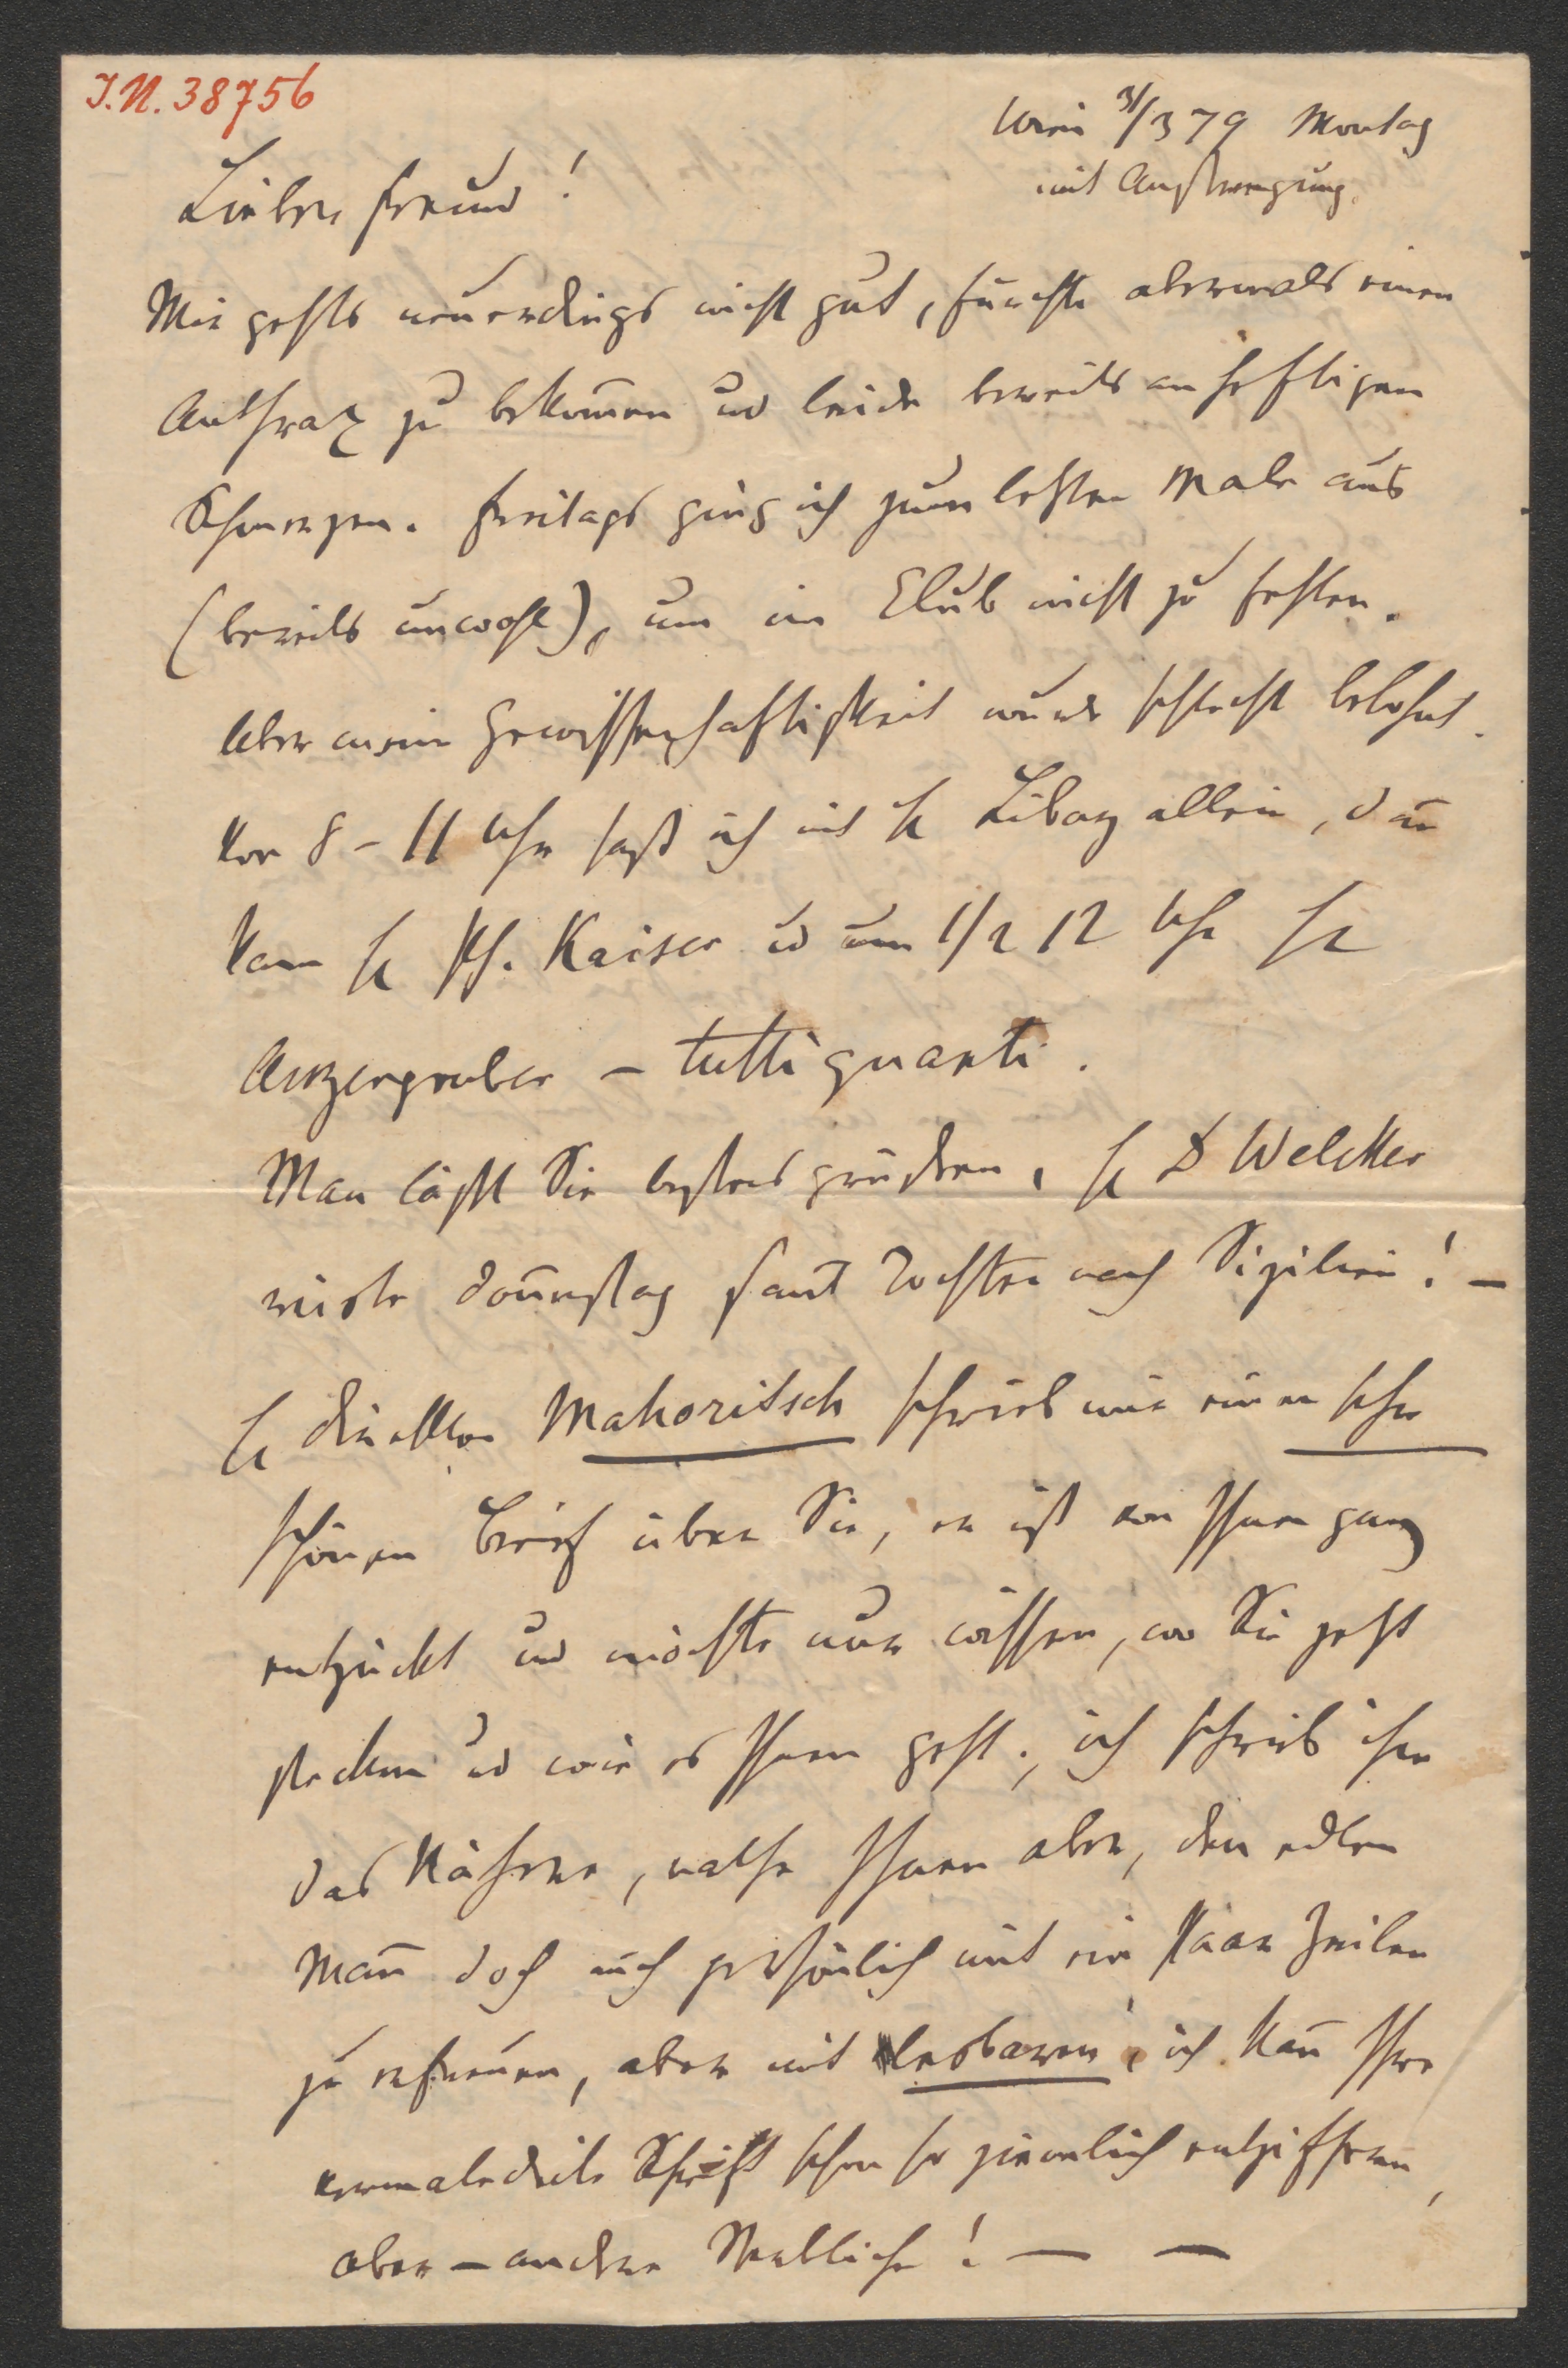 J.N. 38756
Wien 31/3 79 Montag
mit Anstrengung.
Lieber Freund!
Mir gehts neuerdings nicht gut, fürchte abermals einen
Anthrax zu bekom̄en und leide bereits an heftigen
Schmerzen. Freitags ging ich zum letzten Male aus
(bereits unwohl), um im Club nicht zu fehlen.
Aber meine Gewissenhaftigkeit wurde schlecht belohnt.
Von 8 – 11 Uhr saß ich mit H Libay allein, dan̄
kam H Kaiser und um 1/2 12 Uhr Hr
Anzengruber – tutti quanti.
Man läßt Sie bestens grüßen. H Dr Welcker
reiste Don̄erstag samt Tochter nach Sizilien! –
H Direktor Mahoritsch schrieb mir einen sehr
schönen Brief über Sie, er ist von Ihnen ganz
entzückt und möchte nur wissen, wo Sie jetzt
stecken und wie es Ihnen geht; ich schrieb ihm
das Nähere, rathe Ihnen aber, den edlen
Man̄ doch auch persönlich mit ein Paar Zeilen
zu erfreuen, aber mit lesbaren; ich kan̄ Ihre
vermaledeite Schrift schon so ziemlich entziffern,
aber – andere Sterbliche! — —